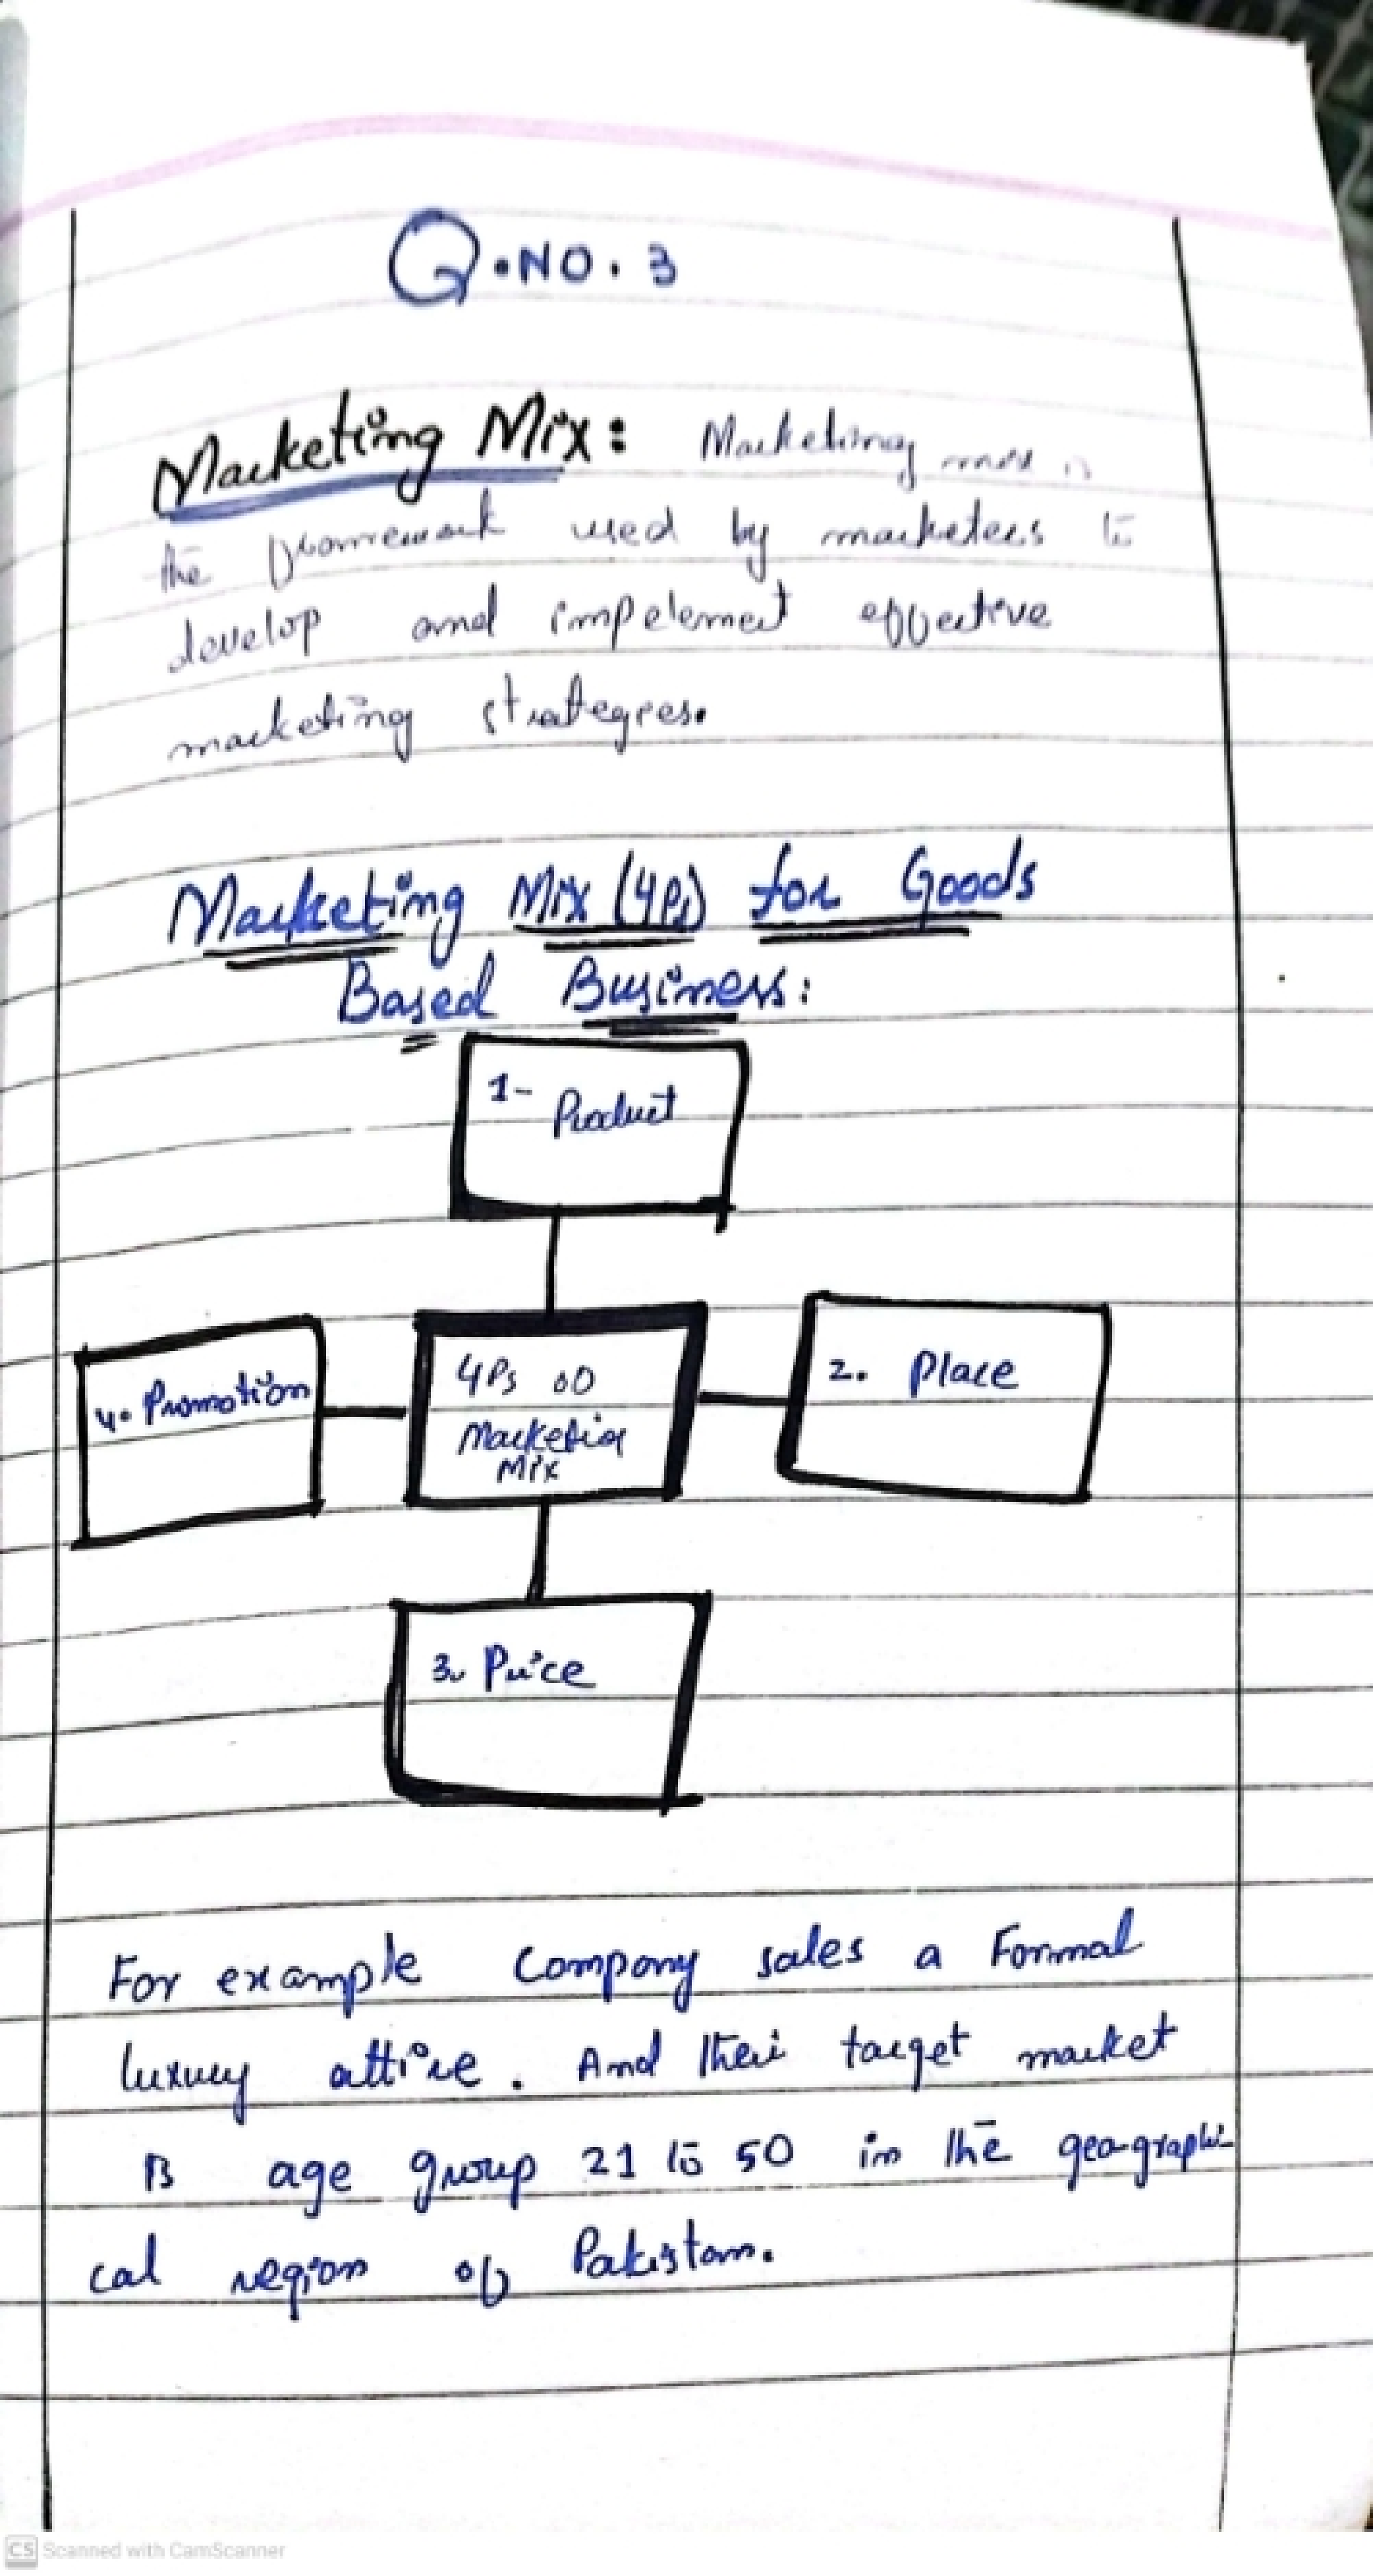 Q.NO. 3
Marketing Mix: Marketing mix is
the framework used by marketers to
develop and impelemet effective
marketing strategies.
Marketing Mix (4Ps) for Goods
Based Business:
1- Product
4. Promotion
4Ps of
Marketing
Mix
2. Place
3. Price
For example Company sales a Formal
luxury attire. And their target market
is age group 21 to 50 in the geographi-
cal region of Pakistan.
CS Scanned with CamScanner